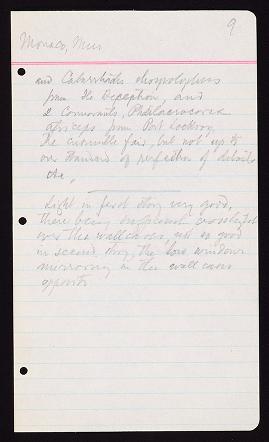 9
Monaco, Mus
and Catarrhactes chrysolophus
from the Deception, and
2 Cormorants, Phalacrocorax
atriceps from Port Lockroy,
The animals fair, but not up to
our standard of perfection of details
etc.
Light in first story very good,
there being sufficient
over the wall cases, not so good
in second story, the low windows
mirroring in the wall cases
opposite